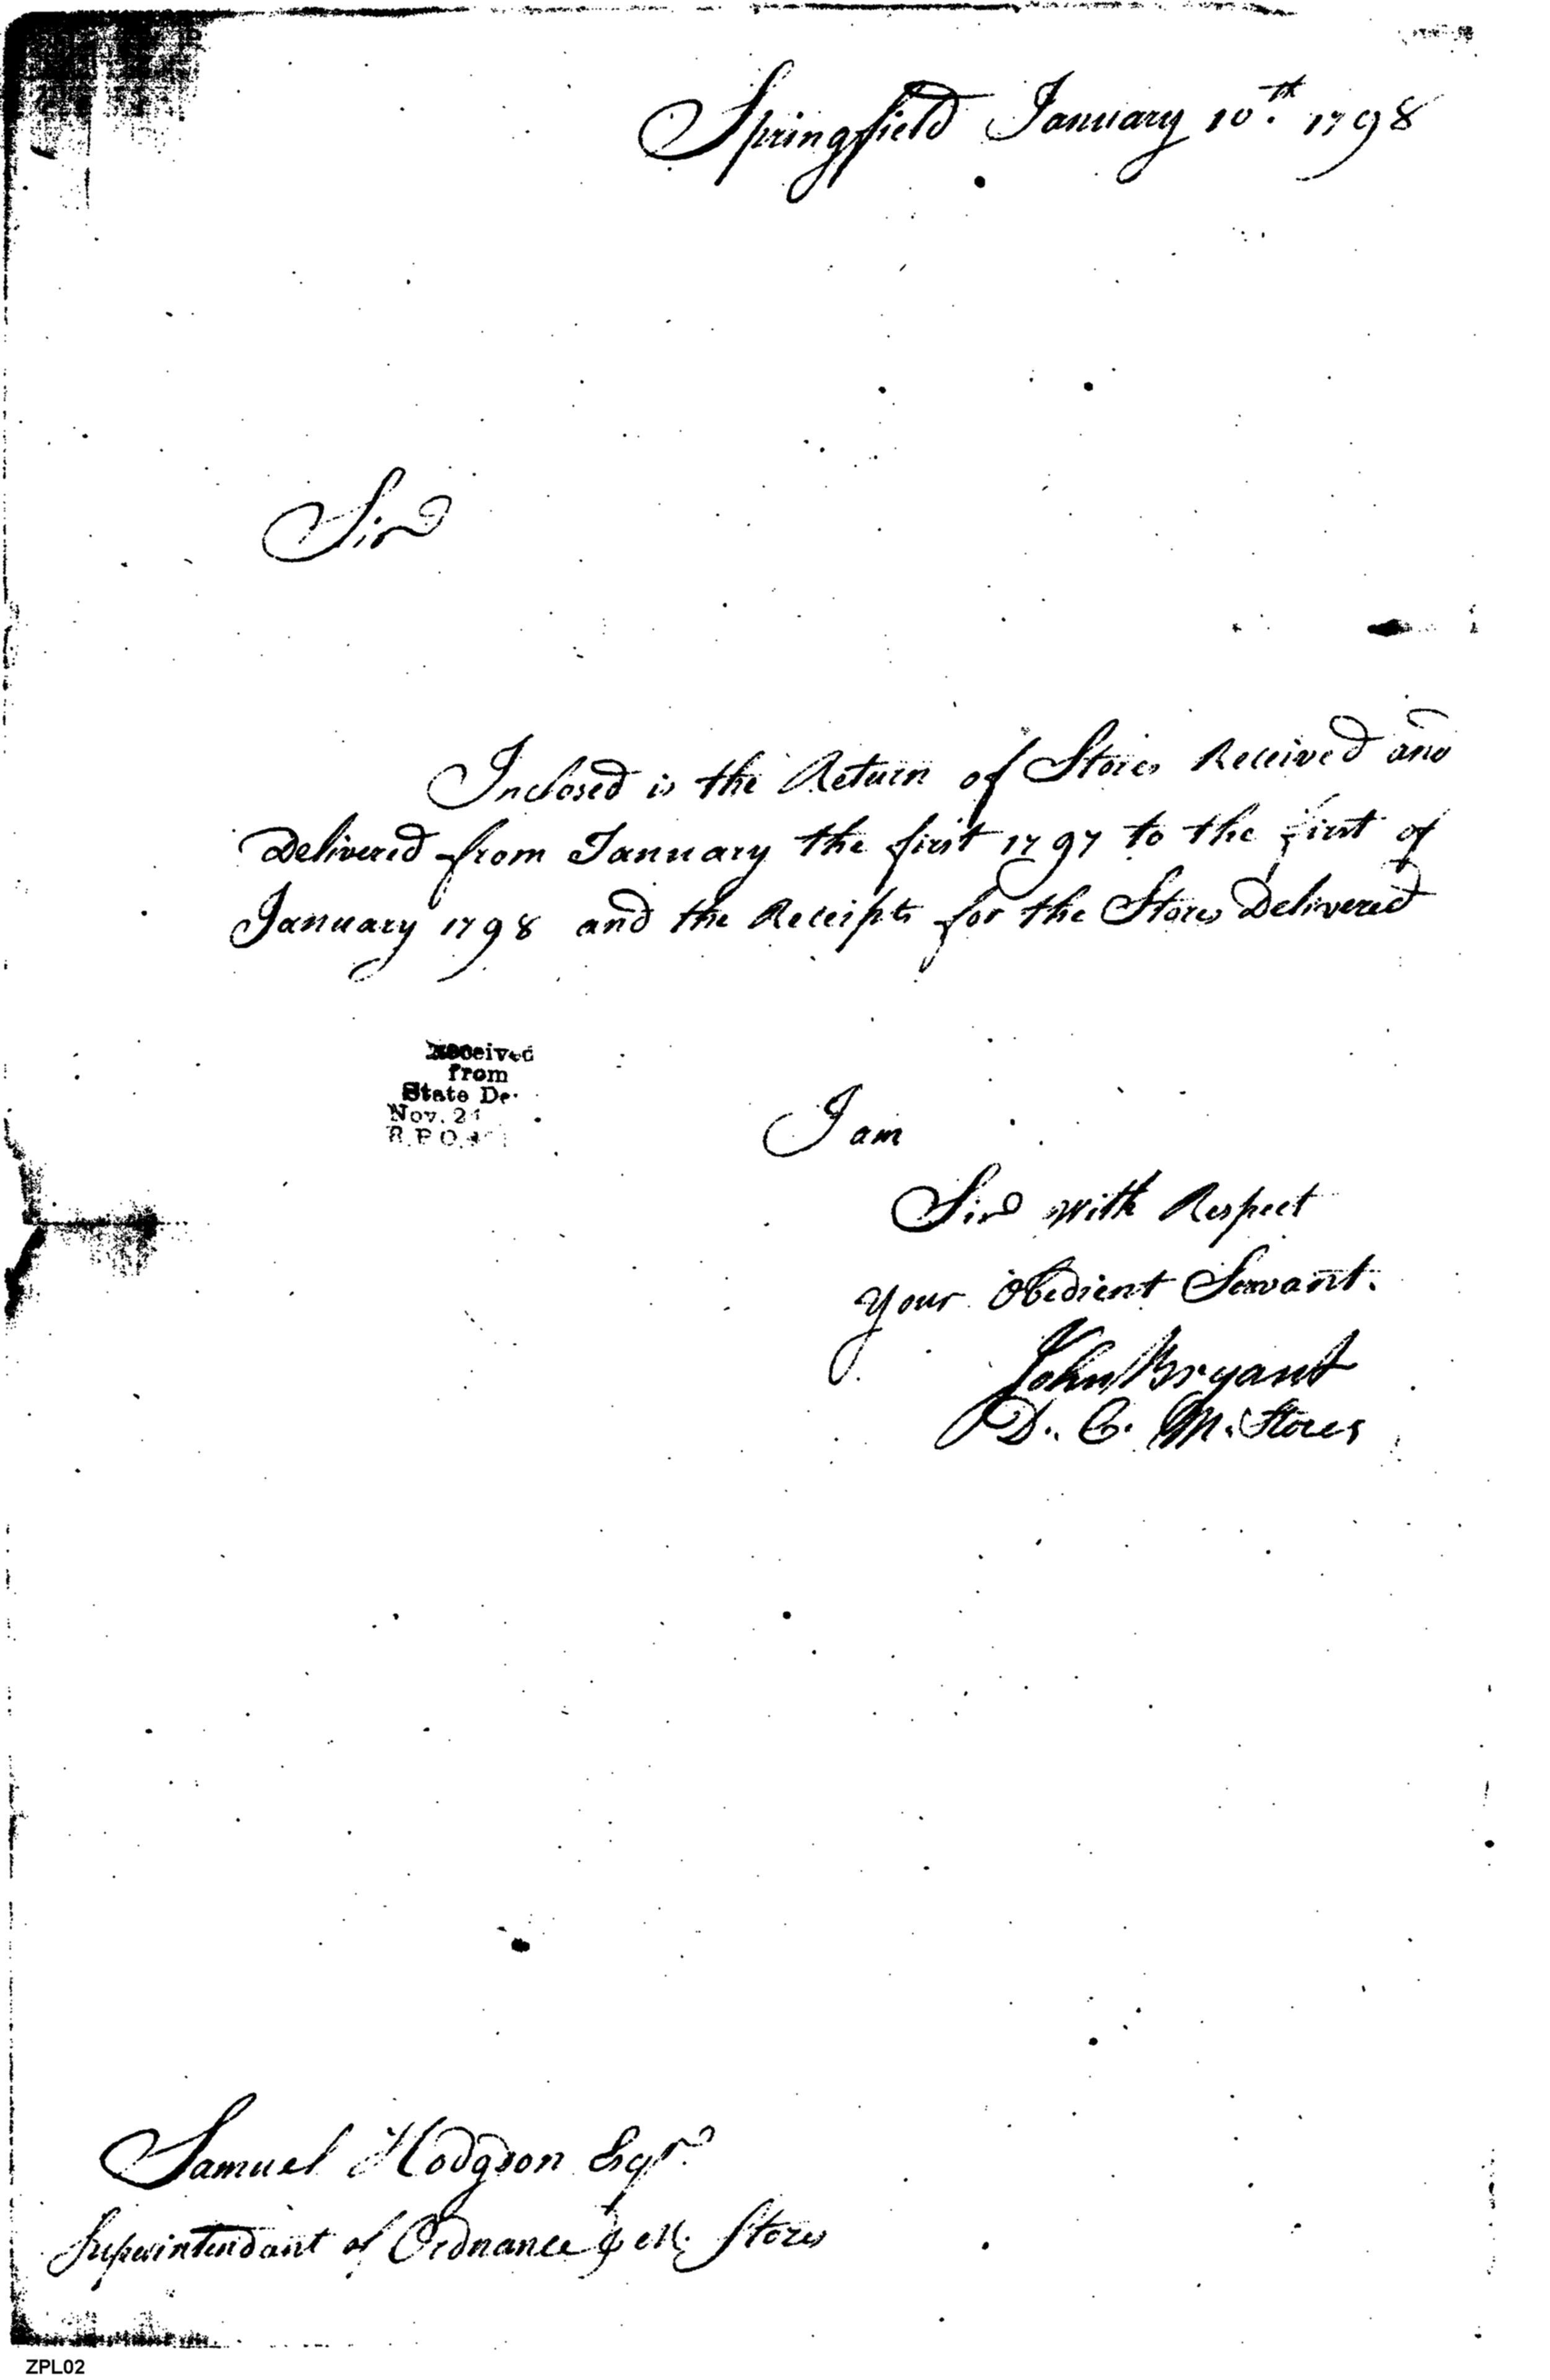 Springfield January 10th. 1798
Sir
Inclosed is the Return of Stores Received and
Delivered from January the first 1797 to the first of
January 1798 and the Receipts for the Stores Delivered
Received
from
State De
Nov. 21
I am
Sir with Respect
Your Obedient Servant.
John Bryant
D. C. M. Stores
Samuel Hodgson Esqr.
Superintendant of Ordnance & M. Stores
ZPL02